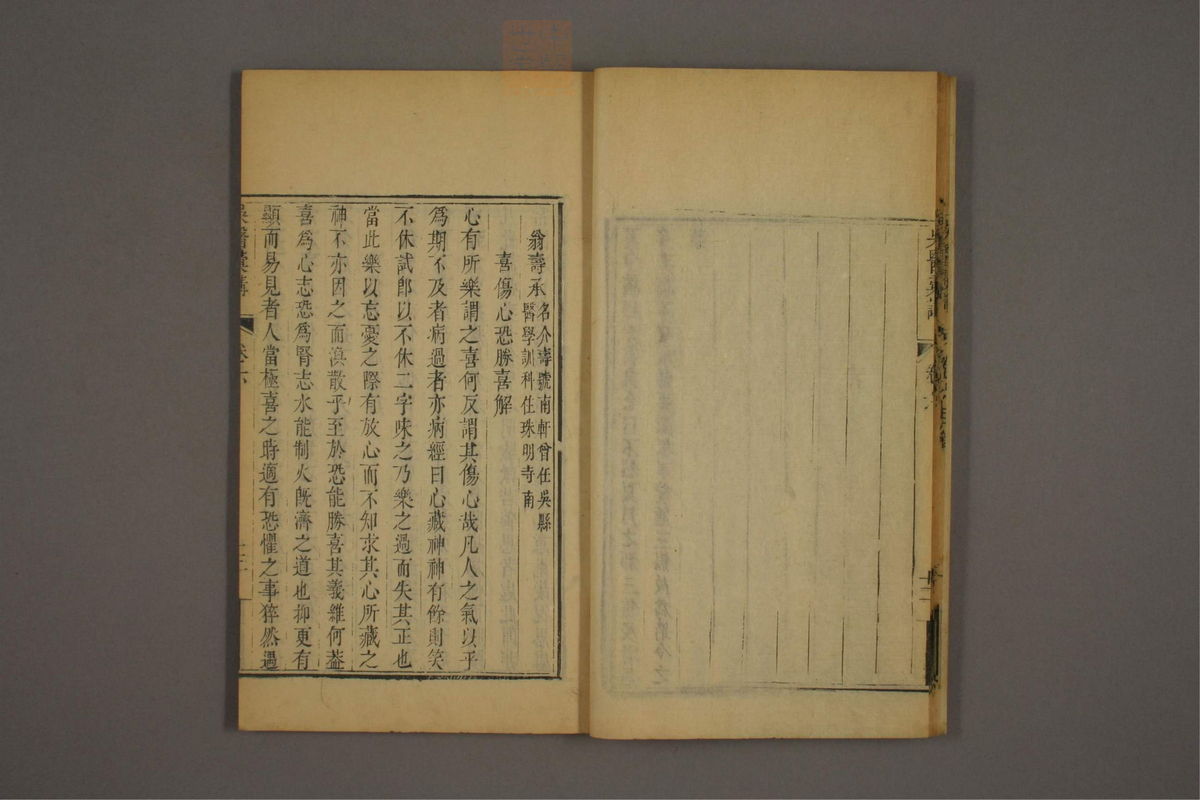 吳醫彙講
翁壽承
名介壽號南軒曾任吳縣
醫學訓科住珠明寺南
喜傷心恐勝喜解
心有所樂謂之喜何反謂其傷心哉凡人之氣以平
為期不及者病過者亦病經曰心藏神神有餘則笑
不休試卽以不休二字味之乃樂之過而失其正也
當此樂以忘憂之際有放心而不知求其心所藏之
神不亦因之而渙散乎至於恐能勝喜其義維何葢
喜爲心志恐爲腎志水能制火旣濟之道也抑更有
顯而易見者人當極喜之時適有恐懼之事猝然遇
吳醫彙講
卷六